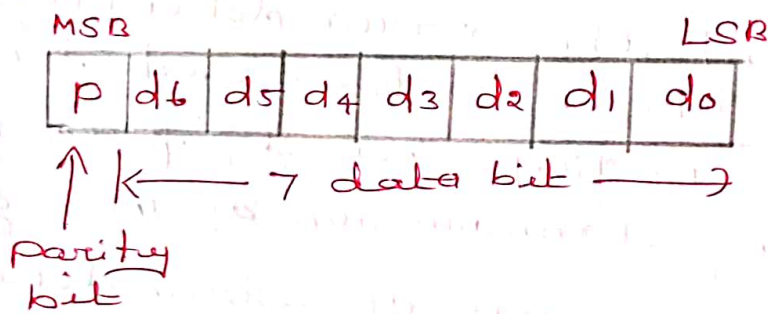 MSB LSB
P d6 d5 d4 d3 d2 d1 d0
7 data bit
parity
bit